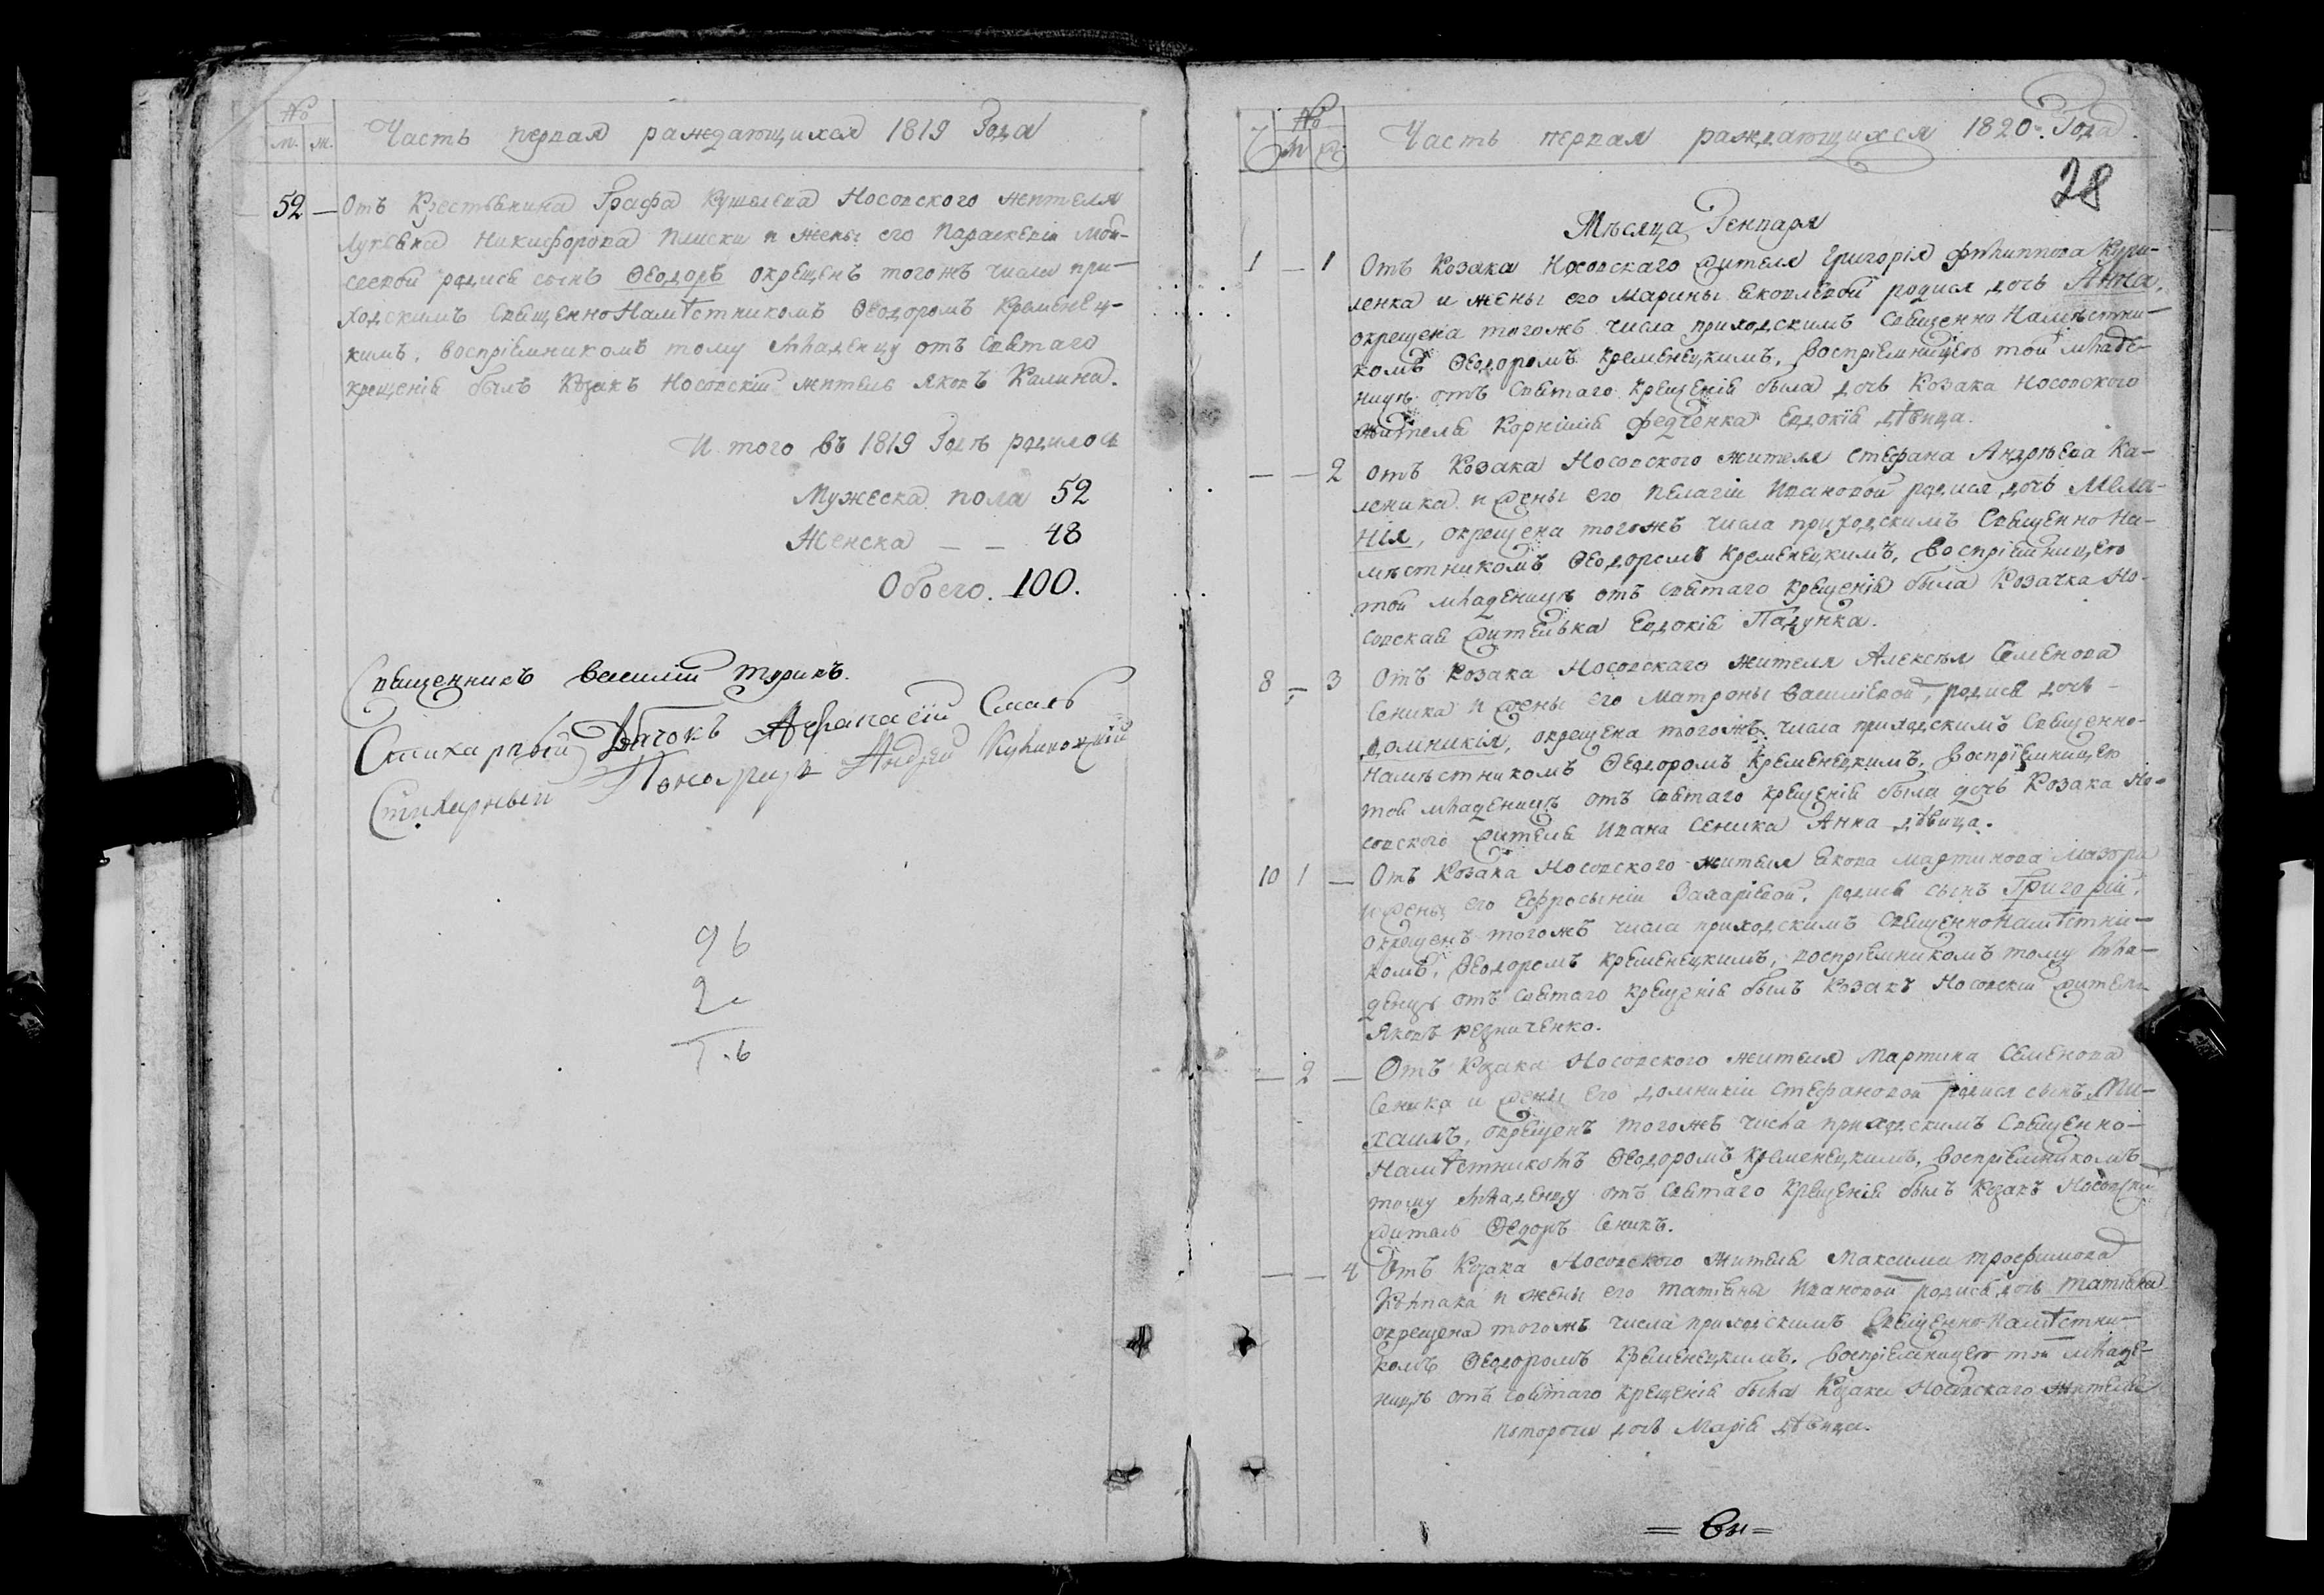 №
м. ж.
Часть первая раждающихся 1819 Года
52 — Отъ Крестьянина Графа Кушелева Носовского жителя
Лукьяна Никифорова Плиски и жены его Параскевіи Мои-
сеевой родися сынъ Ѳеодоръ окрещенъ тогожъ числа при-
ходскимъ СвященноНамѣстникомъ Ѳеодоромъ Кременец-
кимъ, воспріемникомъ тому младенцу отъ Святаго
крещенія былъ Козакъ Носовскій житель Яковъ Калина.
И того въ 1819 Годѣ родилось
Мужеска пола 52
Женска — — 48
Обоего. 100.
Священникъ Василій Турикъ.
Стихарный Дьячокъ Афанасій Смаль
Стихарный Пономарь Андрей
96
2
№
Часть первая раждающихся 1820. Года
28
Мѣсяца Генваря
1 — 1 Отъ Козака Носовскаго жителя Григорія Филиппова Кури-
ленка и жены его Марины Яковлевой родися дочь Анна,
окрещена тогожъ числа приходскимъ Священно Намѣстни-
комъ Ѳеодоромъ Кременецкимъ, Воспріемницею той младе-
ницѣ отъ Святаго Крещенія была дочь Козака Носовского
жителя Корнилія Федченка Евдокія дѣвица.
— — 2 Отъ Козака Носовского жителя Стефана Андрѣева Ка-
леника и жены его Пелагіи Ивановой родися дочь Мела-
нія, окрещена тогожъ числа приходскимъ Священно На-
мѣстникомъ Ѳеодоромъ Кременецкимъ, Воспріемницею
той младеницѣ отъ Святаго Крещенія была Козачка Но-
совская жителька Евдокія Падунка.
8 — 3 Отъ Козака Носовскаго жителя Алексѣя Семенова
Сеника и жены его Матроны Василіевой, родися дочь
Домникія, окрещена тогожъ числа приходскимъ Священно-
Намѣстникомъ Ѳеодоромъ Кременецкимъ, Воспріемницею
той младеницѣ отъ Святаго Крещенія была дочь Козака Но-
совского жителя Ивана Сеника Анна дѣвица.
10 1 — Отъ Козака Носовского жителя Якова Мартинова Мазора
и жены его Ефросыніи Захаріевой, родися сынъ Григорій,
окрещенъ тогожъ числа приходскимъ СвященноНамѣстни-
комъ, Ѳеодоромъ Кременецкимъ, воспріемникомъ тому мла-
денцу отъ Святаго Крещенія былъ Козакъ Носовскій житель
Яковъ Резниченко.
— 2 — Отъ Козака Носовского жителя Мартина Семенова
Сеника и жены его Домникіи Стефановой родися сынъ Ми-
хаилъ, окрещенъ тогожъ числа приходскимъ Священно-
Намѣстникомъ Ѳеодоромъ Кременецкимъ, Воспріемникомъ
тому младенцу отъ Святаго Крещенія былъ Козакъ Носовскій
житель Ѳедоръ Сеникъ.
— — 4 Отъ Козака Носовского жителя Максима Трофимова
Колпака и жены его Татіаны Ивановой родися дочь Татіана
окрещена тогожъ числа приходскимъ Священно-Намѣстни-
комъ Ѳеодоромъ Кременецкимъ. Воспріемницею той младе-
ницѣ отъ Святаго Крещенія была Козака Носовскаго жителя
дочь Марія дѣвица.